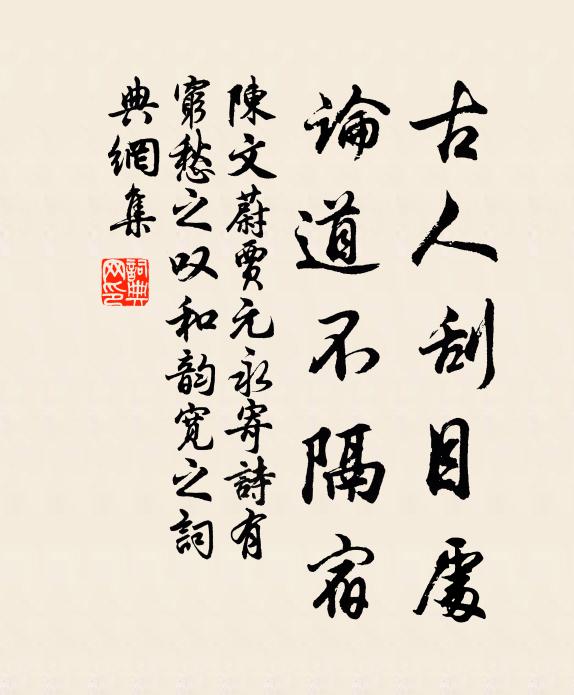 古人刮目處
論道不隔宿
陳文蔚賈元永寄詩有
窮愁之叹和韵寬之詞
典網集
詞典网印